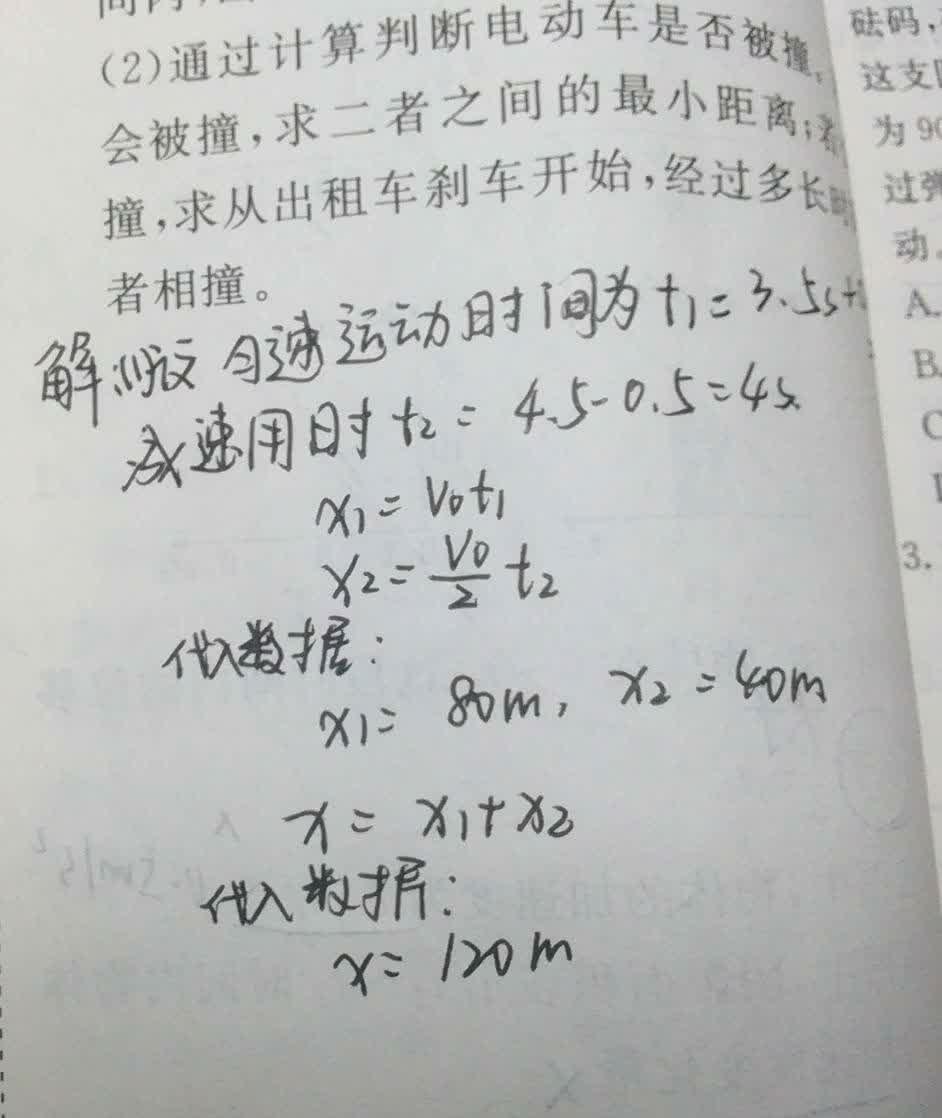 (2)通过计算判断电动车是否被撞,
会被撞,求二者之间的最小距离;若
撞,求从出租车刹车开始,经过多长时
者相撞。
解:(1)设匀速运动时间为t₁=3.5s+
减速用时t₂=4.5-0.5=4s.
x₁=v₀t₁
x₂=v₀/2 t₂
代入数据:
x₁=80m, x₂=40m
x=x₁+x₂
代入数据:
x=120m
砝码,
这支
为90
过弹
动。
A.
B.
C
3.